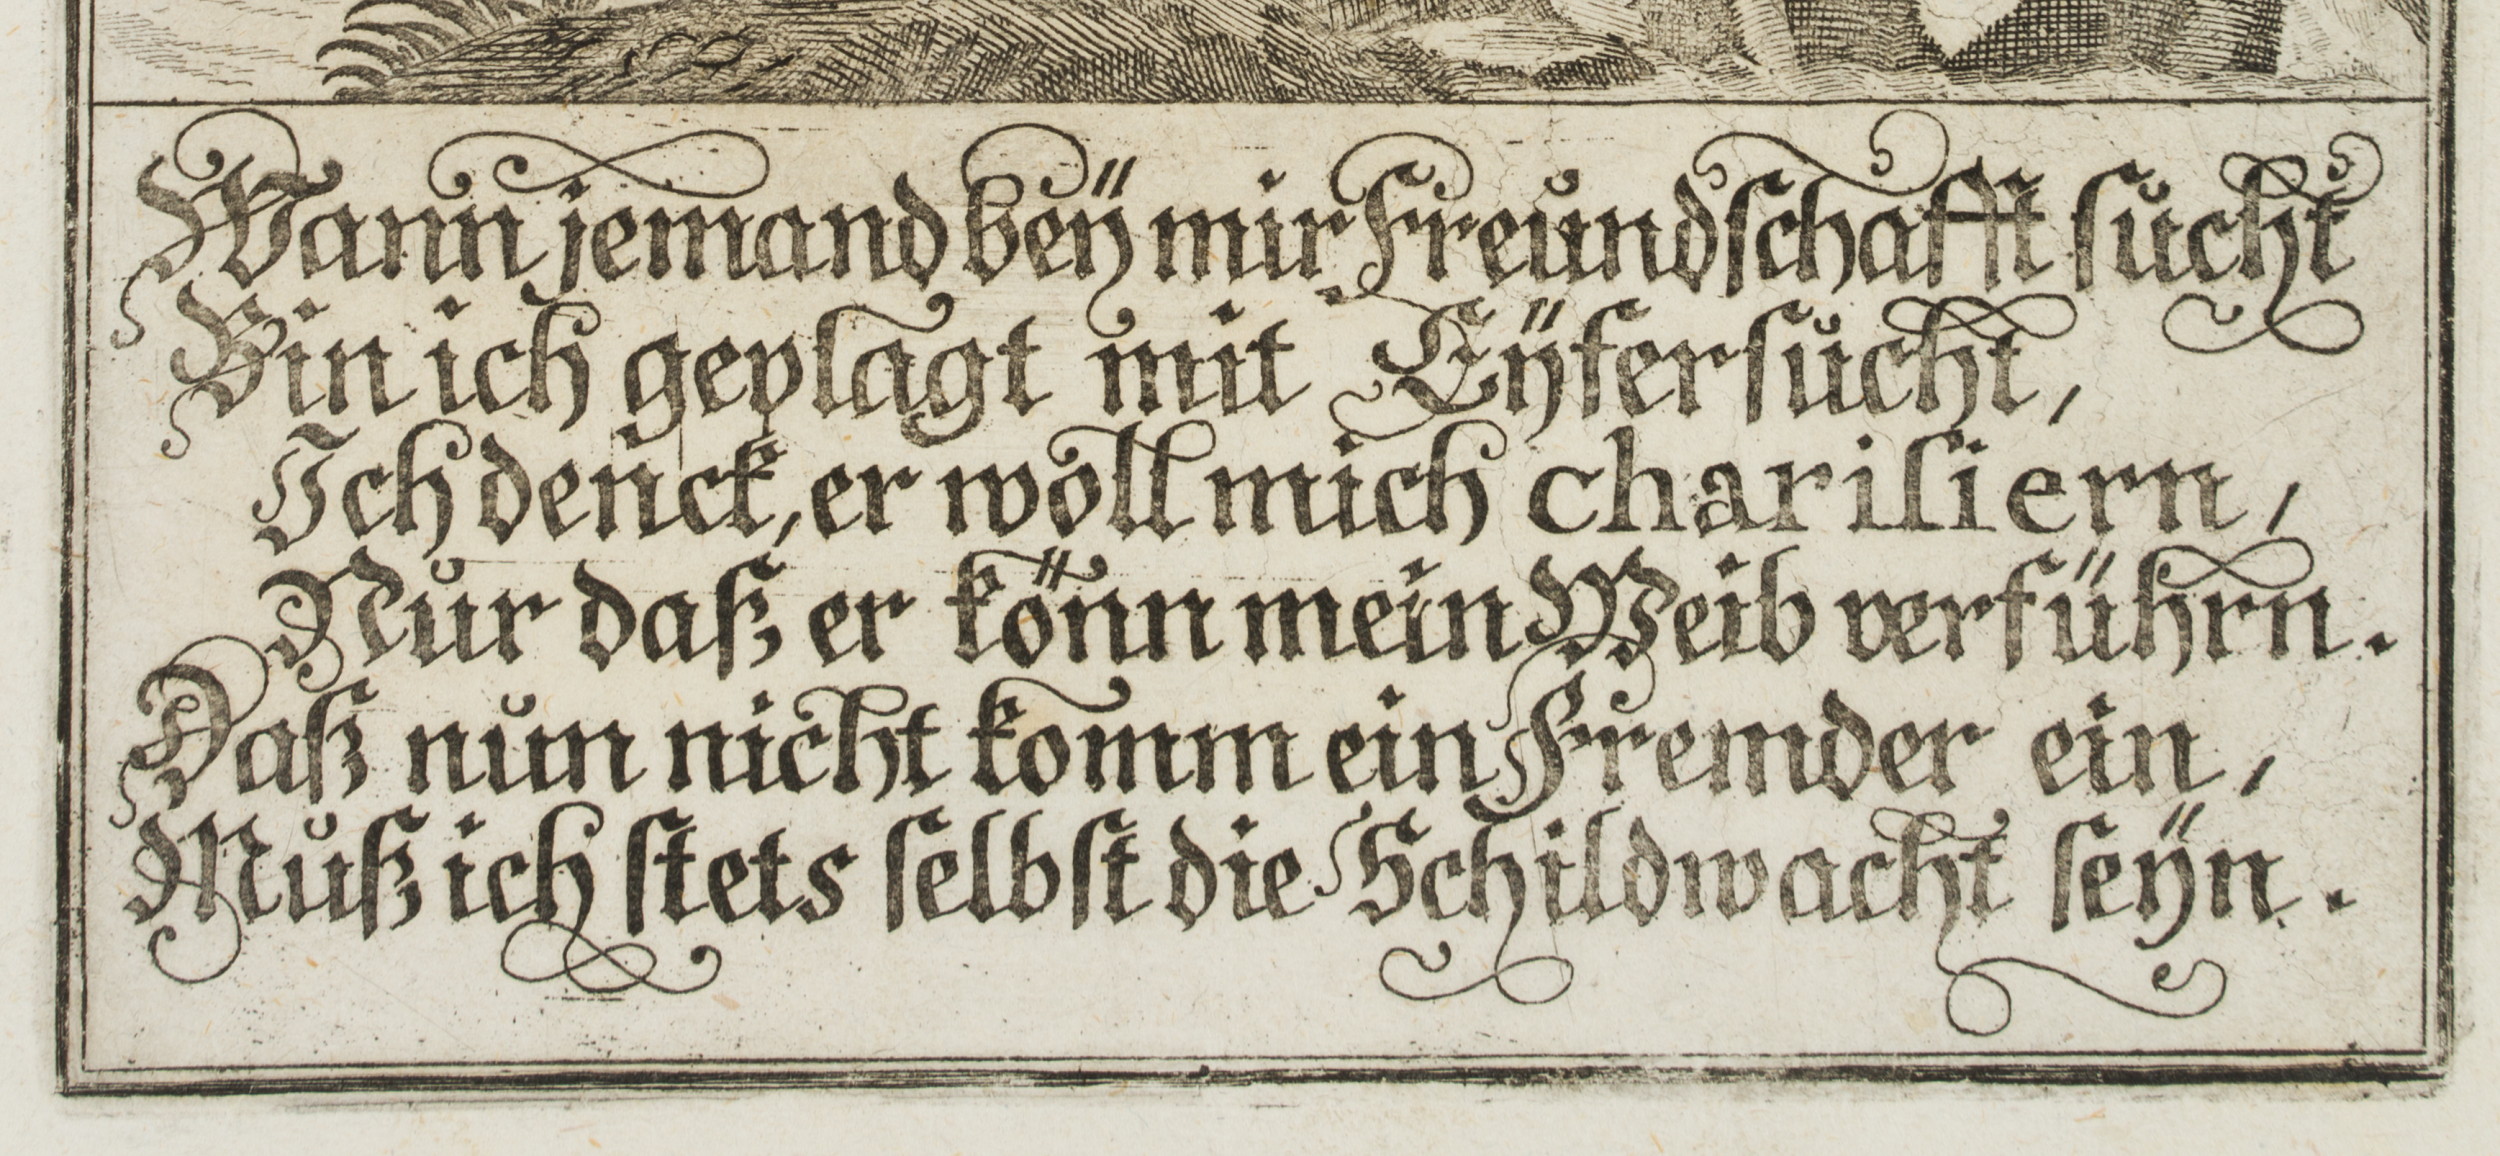 Wann jemand beÿ mir Freundschafft sucht
Bin ich geplagt mit Eÿfersucht,
Ich denck, er woll mich charisiern,
Nur daß er könn mein Weib verführn.
Daß nun nicht komm ein Fremder ein,
Muß ich stets selbst die Schildwacht seÿn.